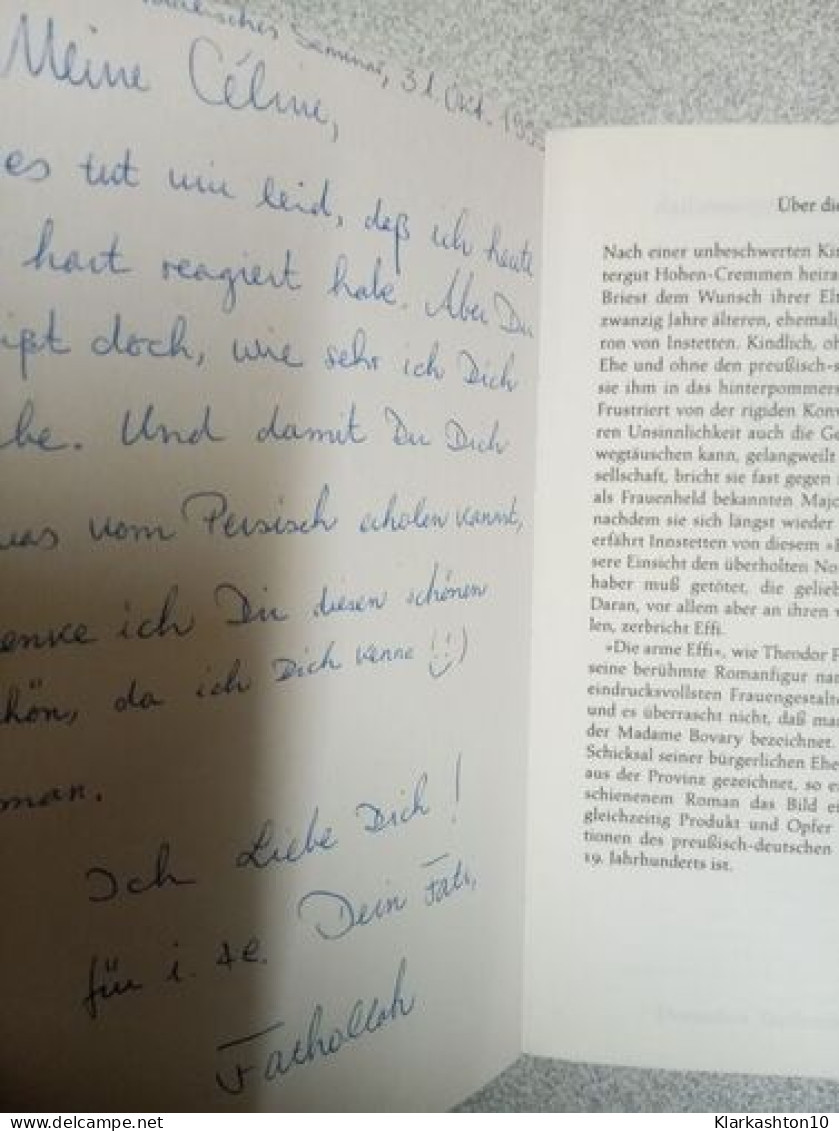 Seminar, 31. Okt. 199
Meine Céline,
es tut mir leid, daß ich heute
hart reagiert habe. Aber Du
ißt doch, wie sehr ich Dich
be. Und damit Du Dich
was vom Persisch erholen kannst,
enke ich Dir diesen schönen
hön, da ich Dich kenne !:)
oman.
Ich Liebe Dich!
für i. Dein Fath,
Fathollah
Über die
Nach einer unbeschwerten Kin
tergut Hohen-Cremmen heira
Briest dem Wunsch ihrer Elt
zwanzig Jahre älteren, ehemali
ron von Instetten. Kindlich, oh
Ehe und ohne den preußisch-s
sie ihm in das hinterpommer
Frustriert von der rigiden Kon
ren Unsinnlichkeit auch die Ge
wegtäuschen kann, gelangweilt
sellschaft, bricht sie fast gegen
als Frauenheld bekannten Majo
nachdem sie sich längst wieder
erfährt Innstetten von diesem »F
sere Einsicht den überholten No
haber muß getötet, die gelieb
Daran, vor allem aber an ihren v
len, zerbricht Effi.
»Die arme Effi«, wie Theodor F
seine berühmte Romanfigur nan
eindrucksvollsten Frauengestalt
und es überrascht nicht, daß man
der Madame Bovary bezeichnet.
Schicksal seiner bürgerlichen Ehe
aus der Provinz gezeichnet, so e
schienenem Roman das Bild ei
gleichzeitig Produkt und Opfer
tionen des preußisch-deutschen
19. Jahrhunderts ist.
Klarkashton10